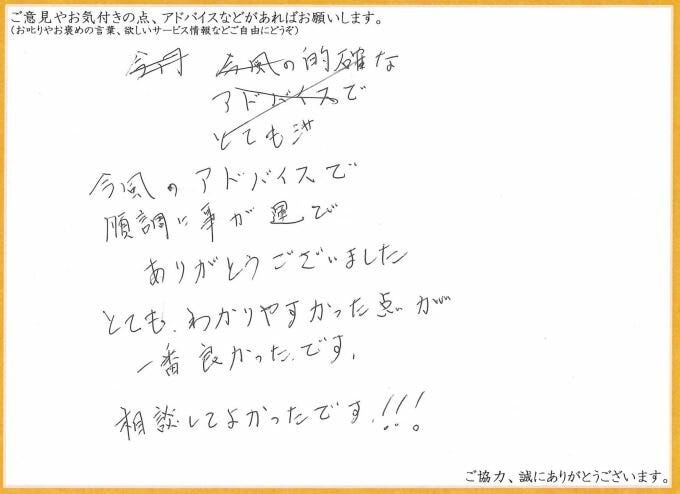 ご意見やお気付きの点、アドバイスなどがあればお願いします。
(お叱りやお褒めの言葉、欲しいサービス情報などご自由にどうぞ)
今月 今風の的確な
アドバイスで
とても
今風のアドバイスで
順調に事が運び
ありがとうございました
とても、わかりやすかった点が
一番良かったです。
相談してよかったです!!!
ご協力、誠にありがとうございます。